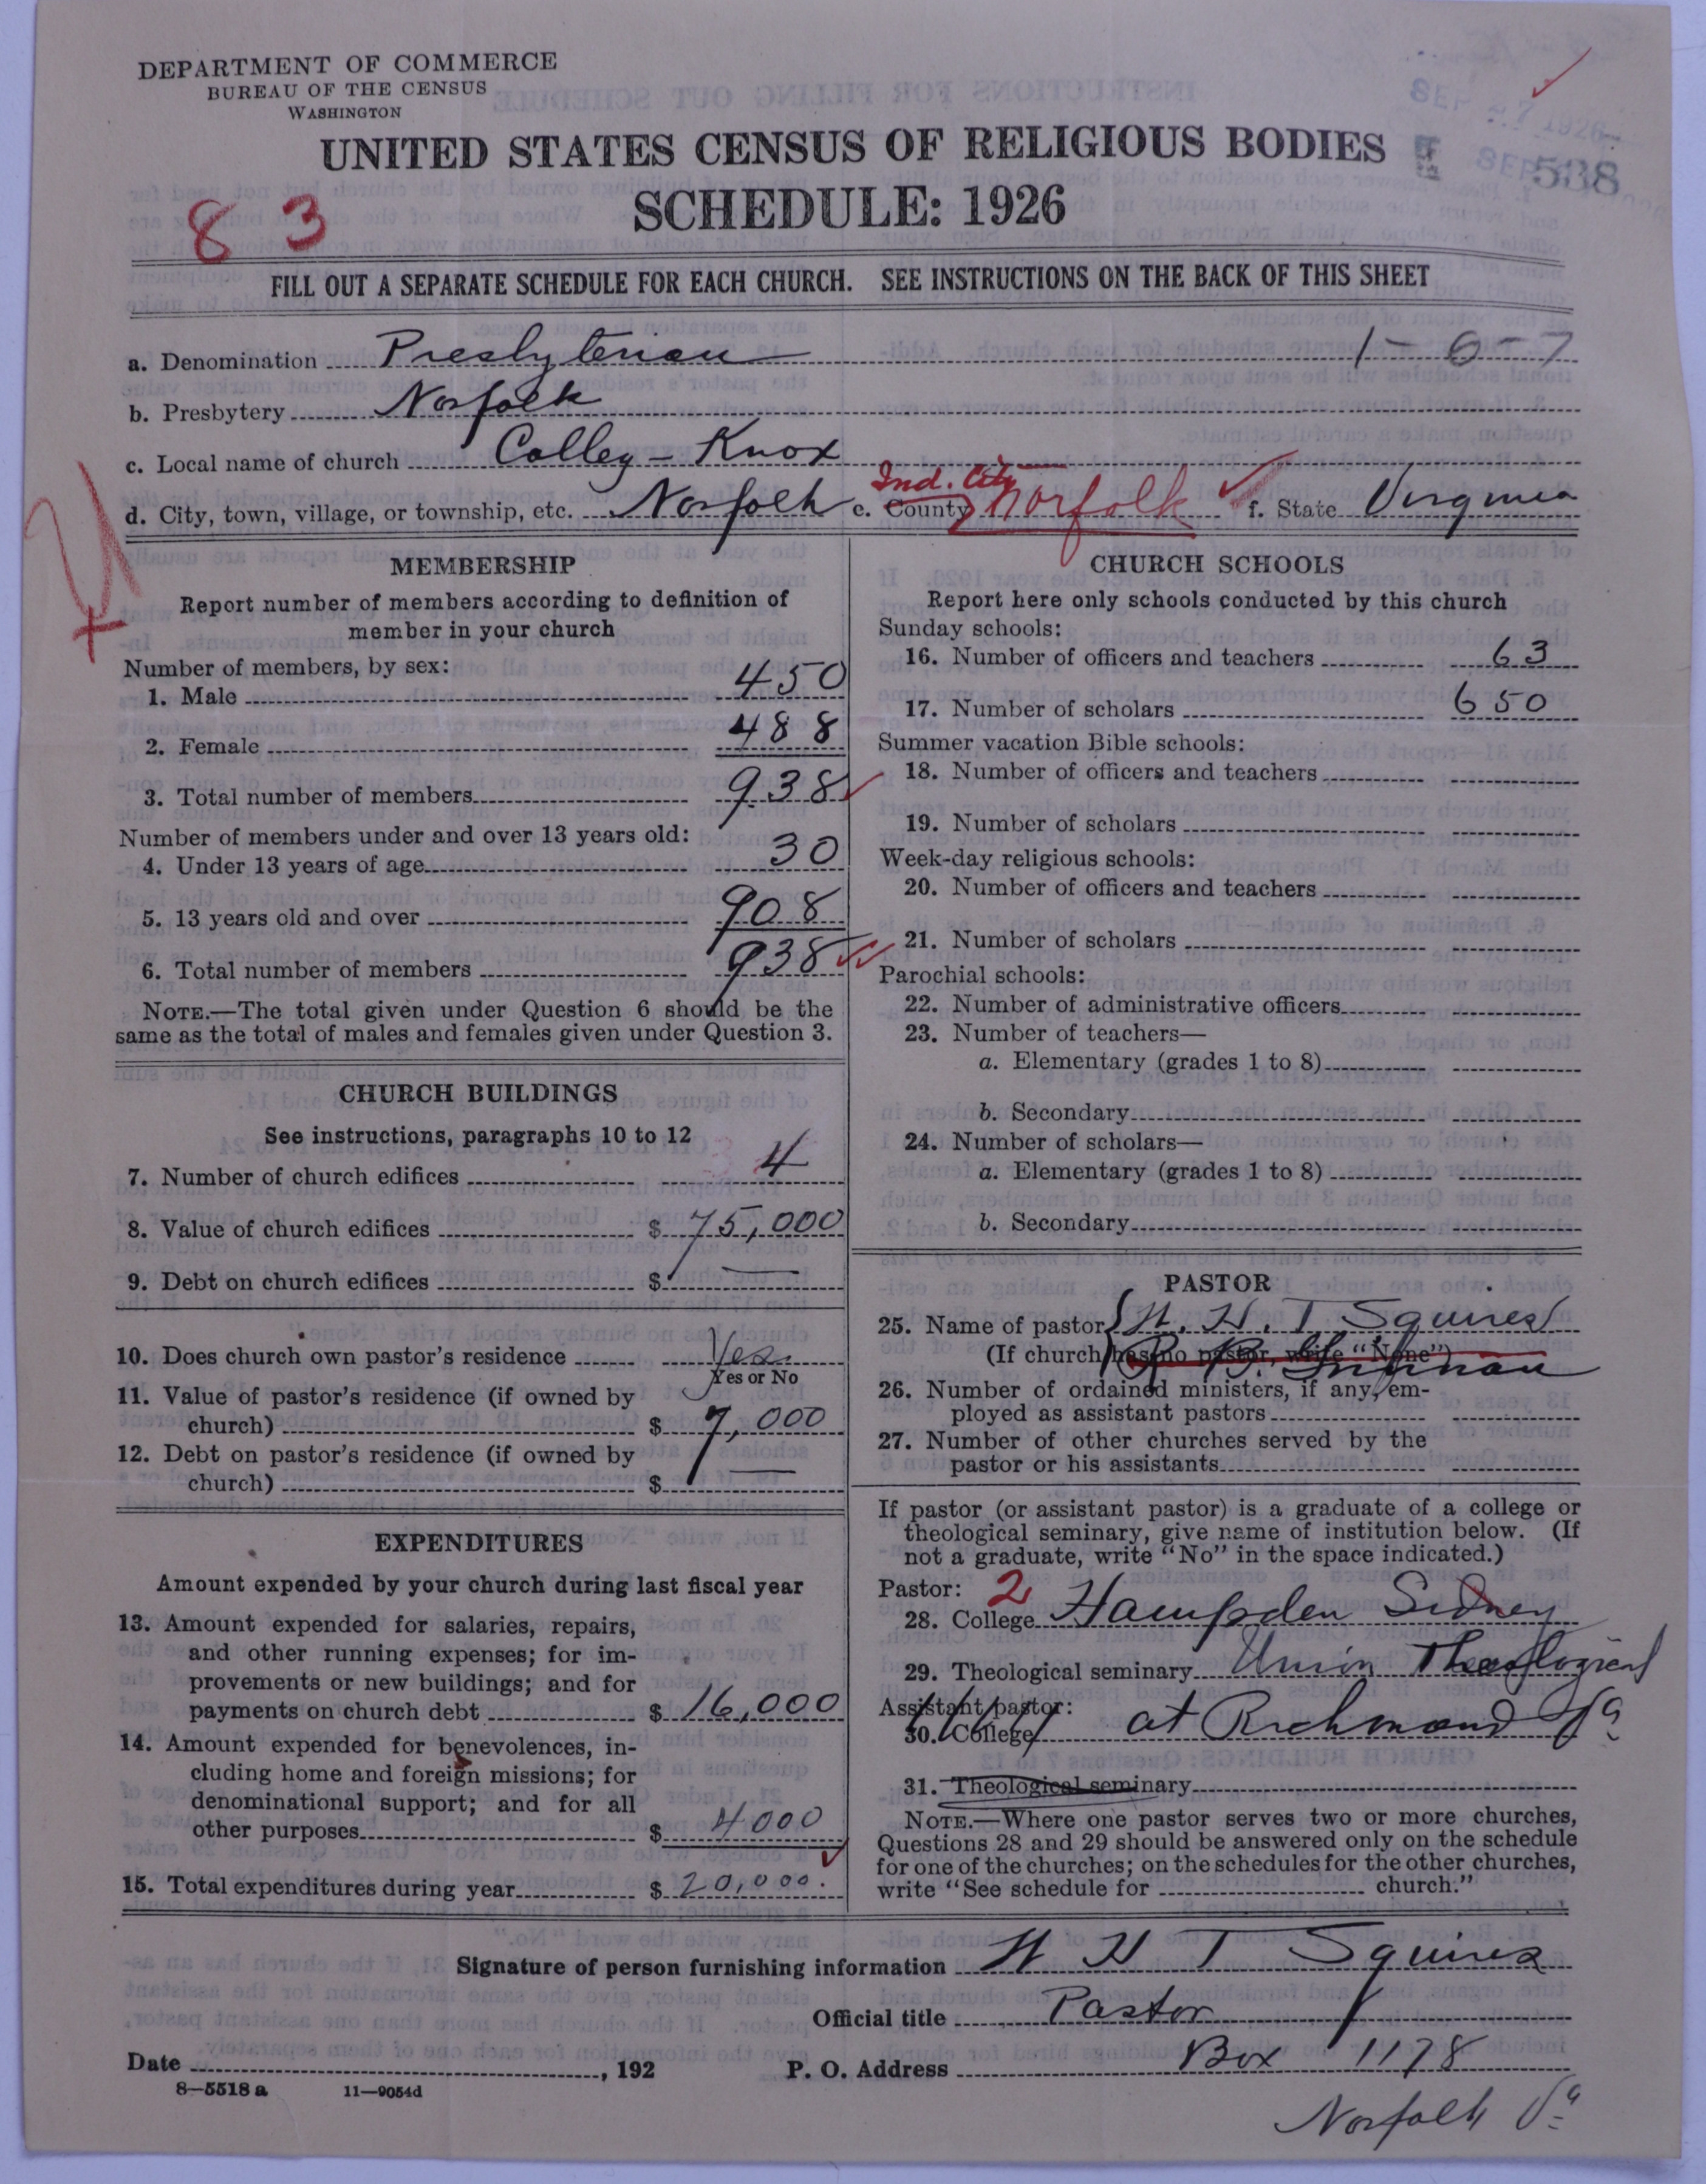 DEPARTMENT OF COMMERCE
BUREAU OF THE CENSUS
WASHINGTON
UNITED STATES CENSUS OF RELIGIOUS BODIES
SCHEDULE: 1926
SEP 27 1926
SEP
538
8 3
FILL OUT A SEPARATE SCHEDULE FOR EACH CHURCH. SEE INSTRUCTIONS ON THE BACK OF THIS SHEET
a. Denomination Presbyterian 1-6-7
b. Presbytery Norfolk
c. Local name of church Colley - Knox
d. City, town, village, or township, etc. Norfolk e. County Ind. City Norfolk f. State Virginia
MEMBERSHIP
Report number of members according to definition of
member in your church
Number of members, by sex:
1. Male 450
2. Female 488
3. Total number of members 938
Number of members under and over 13 years old:
4. Under 13 years of age 30
5. 13 years old and over 908
6. Total number of members 938
NOTE.—The total given under Question 6 should be the
same as the total of males and females given under Question 3.
CHURCH BUILDINGS
See instructions, paragraphs 10 to 12
7. Number of church edifices 4
8. Value of church edifices $ 75,000
9. Debt on church edifices $ —
10. Does church own pastor's residence Yes
Yes or No
11. Value of pastor's residence (if owned by
church) $ 7,000
12. Debt on pastor's residence (if owned by
church) $ —
EXPENDITURES
Amount expended by your church during last fiscal year
13. Amount expended for salaries, repairs,
and other running expenses; for im-
provements or new buildings; and for
payments on church debt $ 16,000
14. Amount expended for benevolences, in-
cluding home and foreign missions; for
denominational support; and for all
other purposes $ 4000
15. Total expenditures during year $ 20,000.
CHURCH SCHOOLS
Report here only schools conducted by this church
Sunday schools:
16. Number of officers and teachers 63
17. Number of scholars 650
Summer vacation Bible schools:
18. Number of officers and teachers
19. Number of scholars
Week-day religious schools:
20. Number of officers and teachers
21. Number of scholars
Parochial schools:
22. Number of administrative officers
23. Number of teachers—
a. Elementary (grades 1 to 8)
b. Secondary
24. Number of scholars—
a. Elementary (grades 1 to 8)
b. Secondary
PASTOR
25. Name of pastor W. H. T Squires
(If church has no pastor, write "None") R. B.
26. Number of ordained ministers, if any, em-
ployed as assistant pastors
27. Number of other churches served by the
pastor or his assistants
If pastor (or assistant pastor) is a graduate of a college or
theological seminary, give name of institution below. (If
not a graduate, write "No" in the space indicated.)
Pastor: 2
28. College Hampden Sidney
29. Theological seminary Union Theological
Assistant pastor:
30. College at Richmond Va
31. Theological seminary
NOTE.—Where one pastor serves two or more churches,
Questions 28 and 29 should be answered only on the schedule
for one of the churches; on the schedules for the other churches,
write "See schedule for church."
Signature of person furnishing information W H T Squires
Official title Pastor
Date , 192 P. O. Address Box 1178
8-5518 a 11-9054d
Norfolk Va